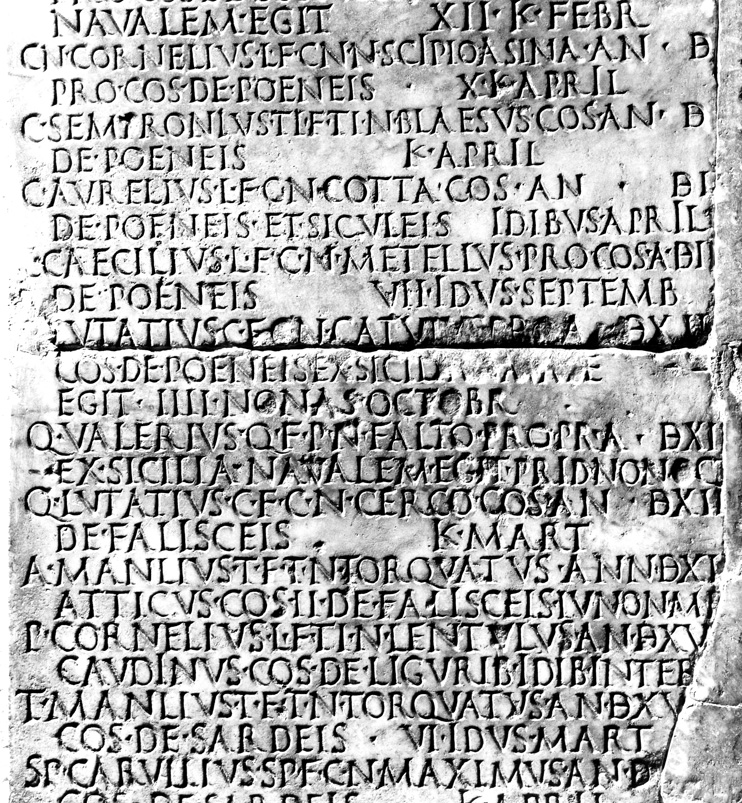 NAVALEM·EGIT XII·K·FEBR
CN·CORNELIVS·L·F·CN·N·SCIPIO ASINA·AN·
PRO·COS·DE·POENEIS X·K·APRIL
C·SEMPRONIVS·TI·F·TI·N·BLAESVS·COS·AN·
DE·POENEIS K·APRIL
C·AVRELIVS·L·F·C·N·COTTA·COS·AN
DE·POENEIS·ET·SICVLEIS IDIBVS·APRIL
CAECILIVS·L·F·C·N·METELLVS·PRO·COS·A·
DE·POENEIS VII·IDVS·SEPTEMB
LVTATIVS·C·F·C·N·CATVL
COS·DE·POENEIS·EX·SICIL
EGIT·IIII·NONAS·OCTOBR
Q·VALERIVS·Q·F·P·N·FALTO·PRO·PR·A·
EX·SICILIA·NAVALEM·EGIT·PRID·NON·
Q·LVTATIVS·C·F·C·N·CERCO·COS·AN
DE·FALISCEIS K·MART
A·MANLIVS·T·F·T·N·TORQVATVS·ANN·
ATTICVS·COS·II·DE·FALISCEIS·IV·NON·
P·CORNELIVS·L·F·TI·N·LENTVLVS·AN·
CAVDINVS·COS·DE·LIGVRIB·IDIB·INTER
T·MANLIVS·T·F·T·N·TORQVATVS·AN·
COS·DE·SARDEIS·VI·IDVS·MART
SP·CARVILIVS·SP·F·C·N·MAXIMVS·AN·